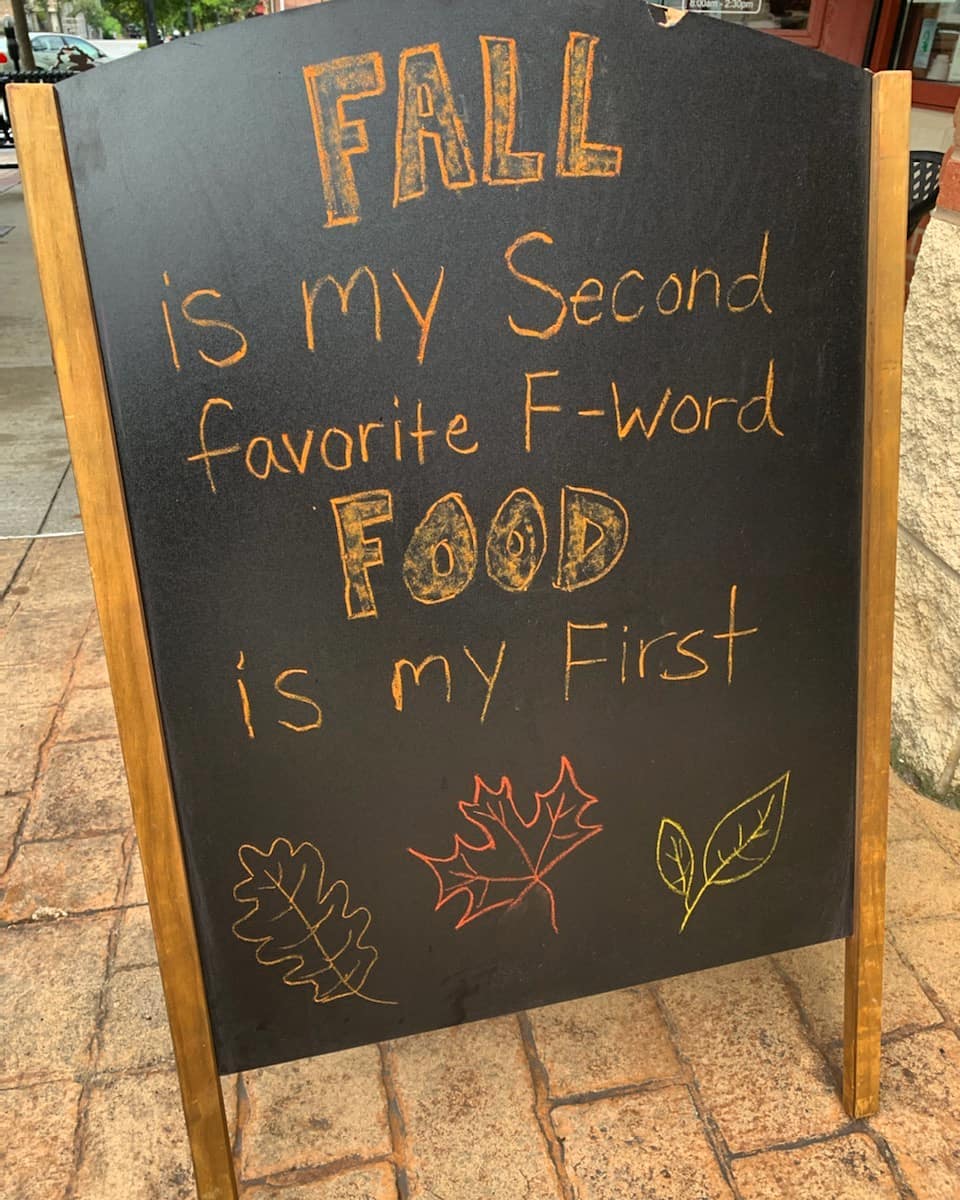 8:00am - 2:30pm
FALL
is my Second
favorite F-word
FOOD
is my First